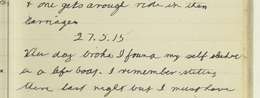 & one gets a rough ride in them
Carriages
27.5.15
When day broke I found my self
in a life boat. I remember
there last night but I must have